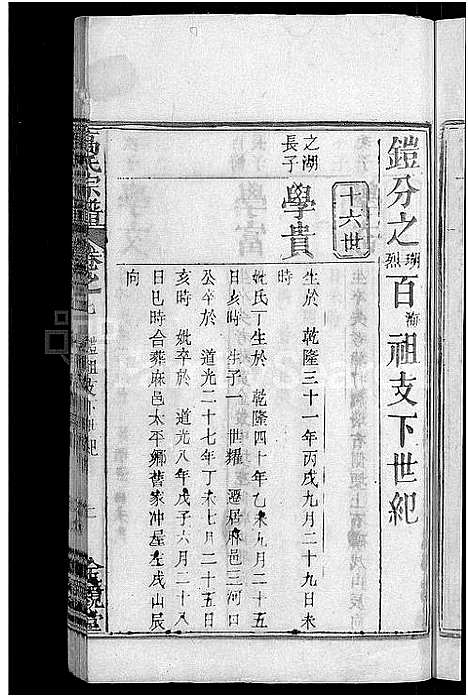 鎧分之瑚烈百瀚祖支下世紀
十六世
之湖長子
學貴
生於 乾隆三十一年丙戌九月二十九日未
時
妣氏丁生於 乾隆四十年乙未九月二十五
日亥時 生子一 世耀 遷居麻邑三河口
公卒於 道光二十七年丁未七月二十五日
亥時 妣卒於 道光八年戊子六月二十八
日巳時合葬麻邑太平鄉曹家冲屋左戌山辰
向
氏宗譜 卷之七 鎧祖支下世紀 二